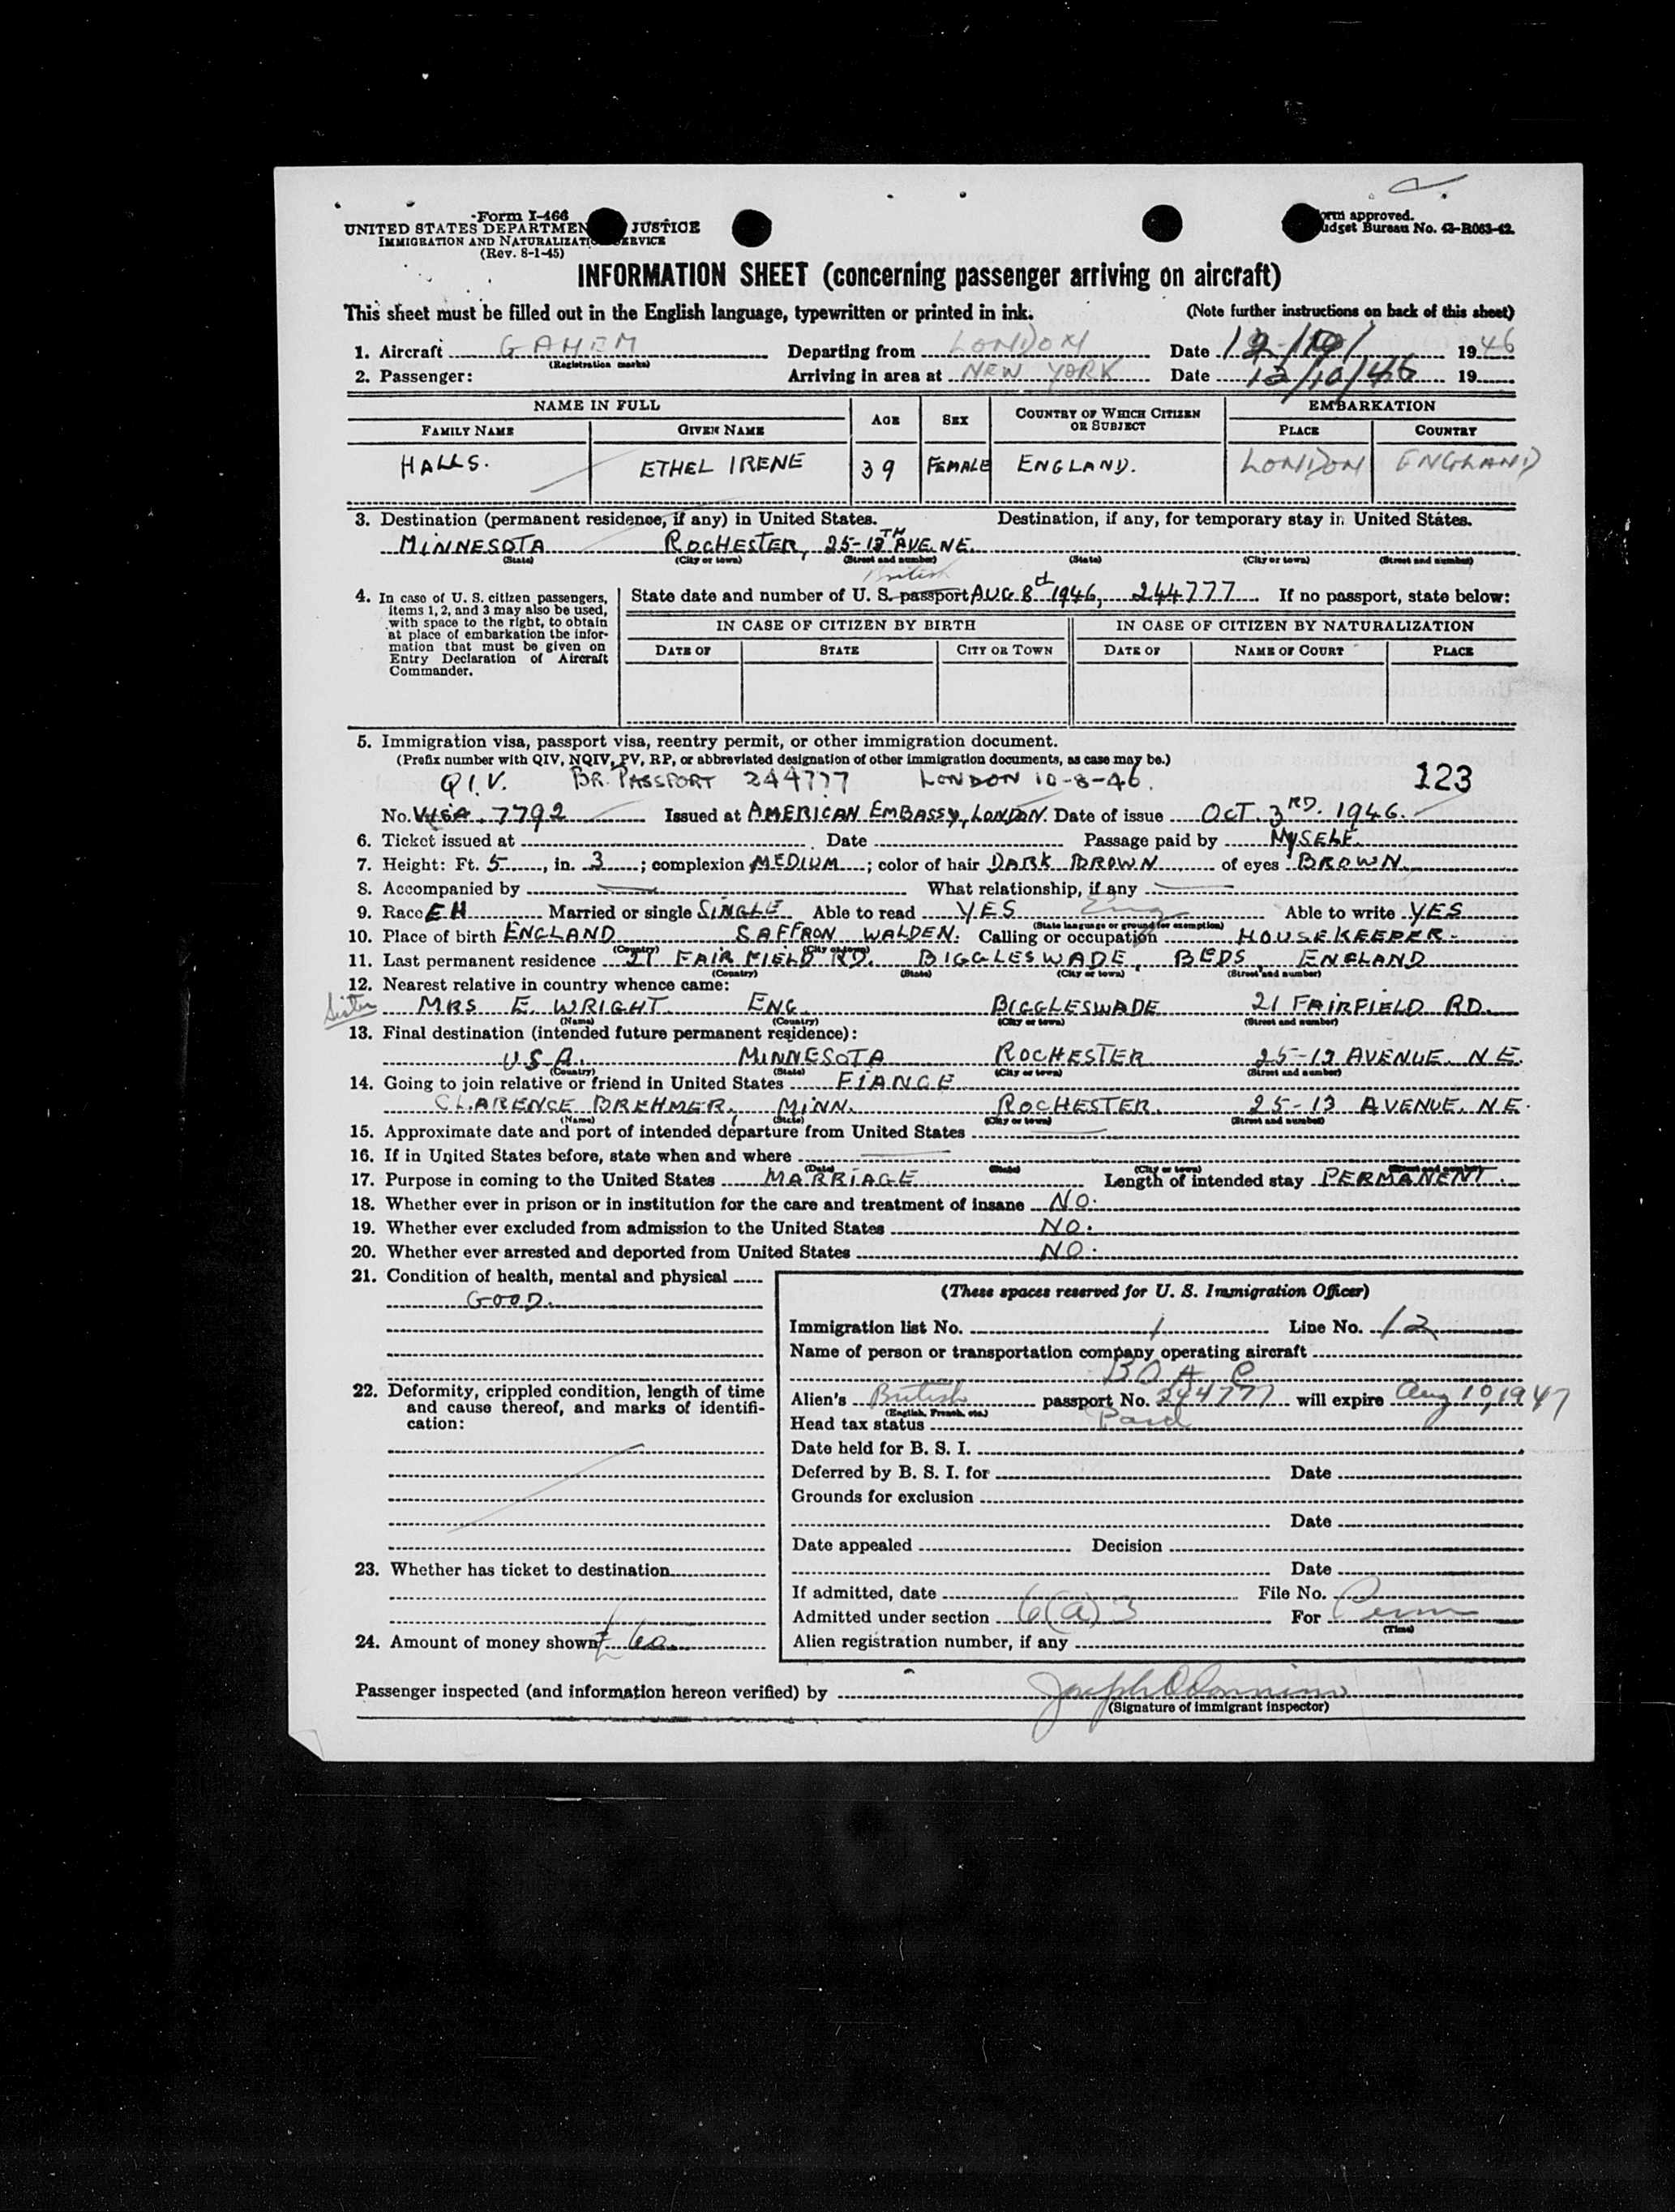 Form I-466
UNITED STATES DEPARTMEN JUSTICE
IMMIGRATION AND NATURALIZATI ERVICE
(Rev. 8-1-45)
orm approved.
udget Bureau No. 43-R063-42.
INFORMATION SHEET (concerning passenger arriving on aircraft)
This sheet must be filled out in the English language, typewritten or printed in ink. (Note further instructions on back of this sheet)
1. Aircraft GAHEM Departing from LONDON Date 1946
(Registration marks)
2. Passenger: Arriving in area at NEW YORK Date 12/10/46 19
NAME IN FULL AGE SEX COUNTRY OF WHICH CITIZEN OR SUBJECT EMBARKATION
FAMILY NAME GIVEN NAME PLACE COUNTRY
HALLS. ETHEL IRENE 39 FEMALE ENGLAND. LONDON ENGLAND
3. Destination (permanent residence, if any) in United States. Destination, if any, for temporary stay in United States.
MINNESOTA ROCHESTER, 25-13TH AVE. NE.
(State) (City or town) (Street and number) (State) (City or town) (Street and number)
British
4. In case of U. S. citizen passengers, items 1, 2, and 3 may also be used, with space to the right, to obtain at place of embarkation the information that must be given on Entry Declaration of Aircraft Commander.
State date and number of U. S. passport AUG 8d 1946, 244777 If no passport, state below:
IN CASE OF CITIZEN BY BIRTH IN CASE OF CITIZEN BY NATURALIZATION
DATE OF STATE CITY OR TOWN DATE OF NAME OF COURT PLACE
5. Immigration visa, passport visa, reentry permit, or other immigration document.
(Prefix number with QIV, NQIV, PV, RP, or abbreviated designation of other immigration documents, as case may be.)
Q.I.V. BR. PASSPORT 244777 LONDON 10-8-46. 123
No. VISA. 7792 Issued at AMERICAN EMBASSY, LONDON. Date of issue OCT. 3RD. 1946.
6. Ticket issued at Date Passage paid by MYSELF.
7. Height: Ft. 5, in. 3; complexion MEDIUM; color of hair DARK BROWN of eyes BROWN
8. Accompanied by What relationship, if any
9. Race EH Married or single SINGLE Able to read YES Eng Able to write YES
(State language or ground for exemption)
10. Place of birth ENGLAND SAFFRON WALDEN. Calling or occupation HOUSEKEEPER.
(Country) (City or town)
11. Last permanent residence 21 FAIRFIELD RD. BIGGLESWADE, BEDS, ENGLAND
(Country) (State) (City or town) (Street and number)
12. Nearest relative in country whence came:
Sister MRS E. WRIGHT. ENG. BIGGLESWADE 21 FAIRFIELD RD.
(Name) (Country) (City or town) (Street and number)
13. Final destination (intended future permanent residence):
U.S.A. MINNESOTA ROCHESTER 25-13 AVENUE. N.E.
(Country) (State) (City or town) (Street and number)
14. Going to join relative or friend in United States FIANCE
CLARENCE BREHMER, MINN. ROCHESTER. 25-13 AVENUE. N.E.
(Name) (State) (City or town) (Street and number)
15. Approximate date and port of intended departure from United States
16. If in United States before, state when and where
(Date) (State) (City or town) (Street and number)
17. Purpose in coming to the United States MARRIAGE Length of intended stay PERMANENT.
18. Whether ever in prison or in institution for the care and treatment of insane NO.
19. Whether ever excluded from admission to the United States NO.
20. Whether ever arrested and deported from United States NO.
21. Condition of health, mental and physical
GOOD.
22. Deformity, crippled condition, length of time and cause thereof, and marks of identification:
23. Whether has ticket to destination
24. Amount of money shown £ 60
(These spaces reserved for U. S. Immigration Officer)
Immigration list No. 1 Line No. 12
Name of person or transportation company operating aircraft
BOAC
Alien's British passport No. 244777 will expire Aug 10, 1947
(English, French, etc.)
Head tax status Paid
Date held for B. S. I.
Deferred by B. S. I. for Date
Grounds for exclusion
Date
Date appealed Decision
Date
If admitted, date File No.
Admitted under section 6(a)3 For Perm
(Time)
Alien registration number, if any
Passenger inspected (and information hereon verified) by Joseph
(Signature of immigrant inspector)